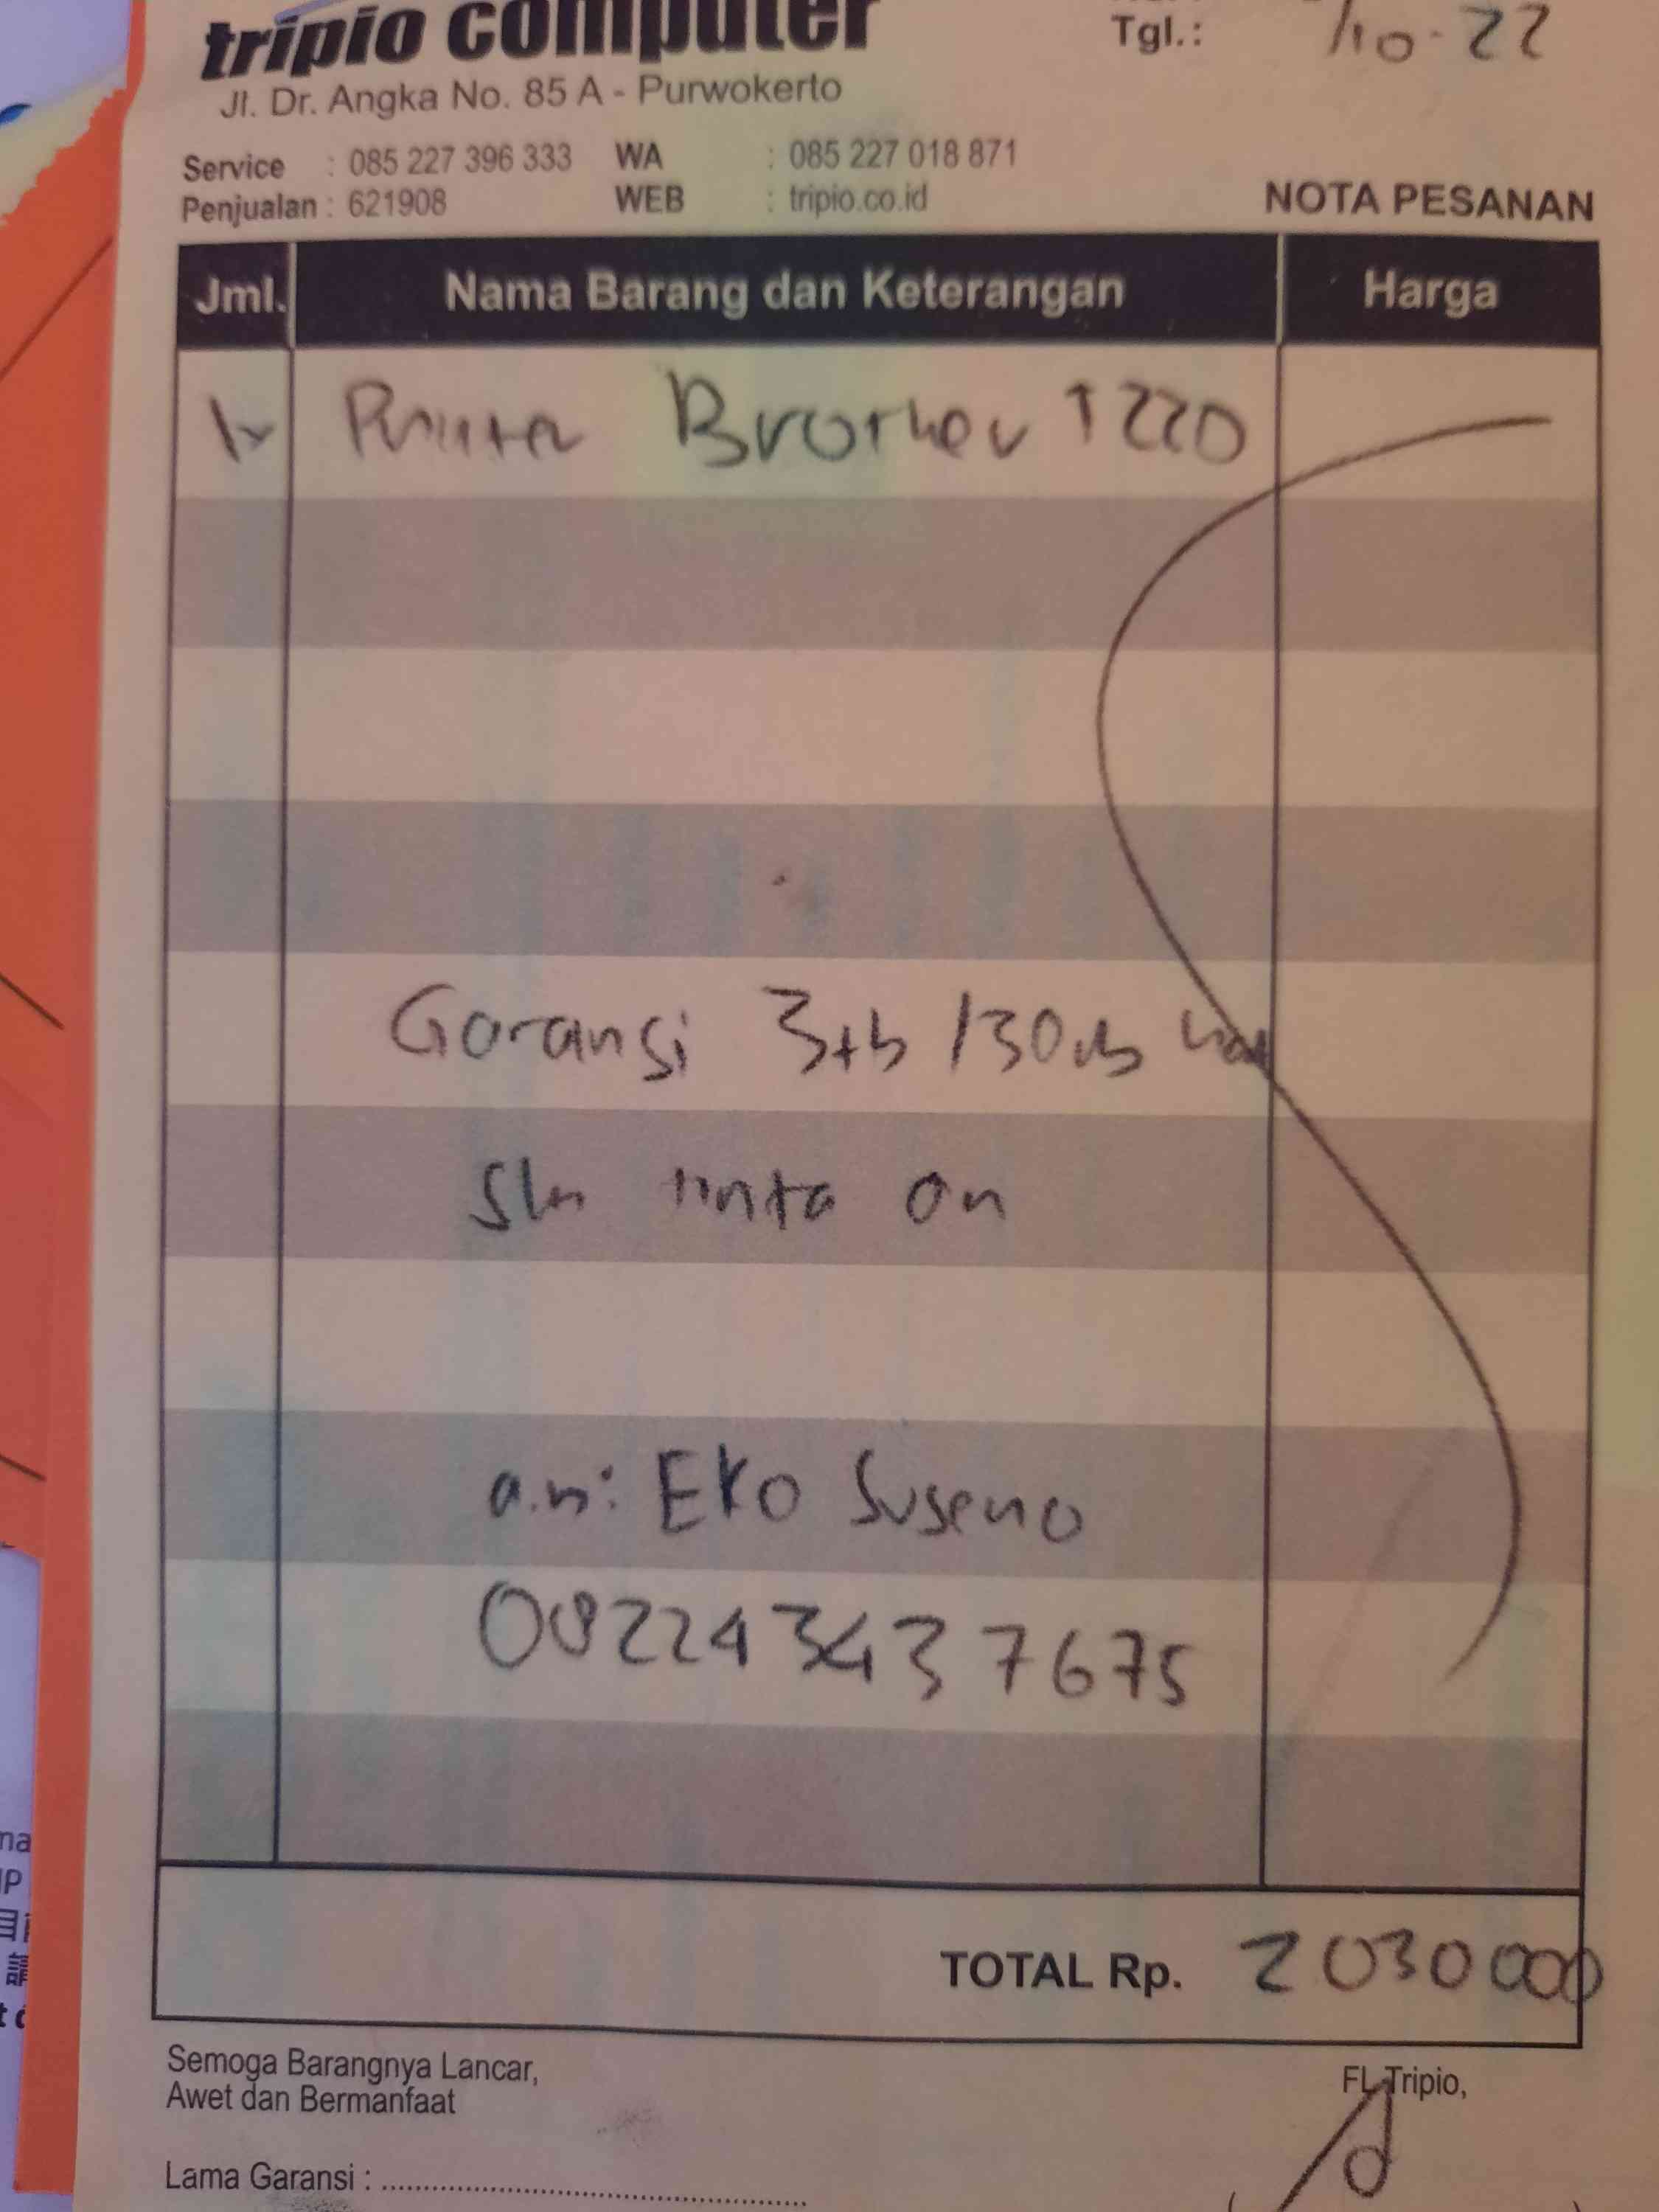 tripio computer
Jl. Dr. Angka No. 85 A - Purwokerto
Tgl.: /10-22
Service : 085 227 396 333 WA : 085 227 018 871
Penjualan : 621908 WEB : tripio.co.id
NOTA PESANAN
Jml. Nama Barang dan Keterangan Harga
1x Printer Brother T220
Garansi 3th /30rb
tinta on
a.n: Eko Suseno
082243437675
TOTAL Rp. 2030000
Semoga Barangnya Lancar,
Awet dan Bermanfaat
FL Tripio,
Lama Garansi :